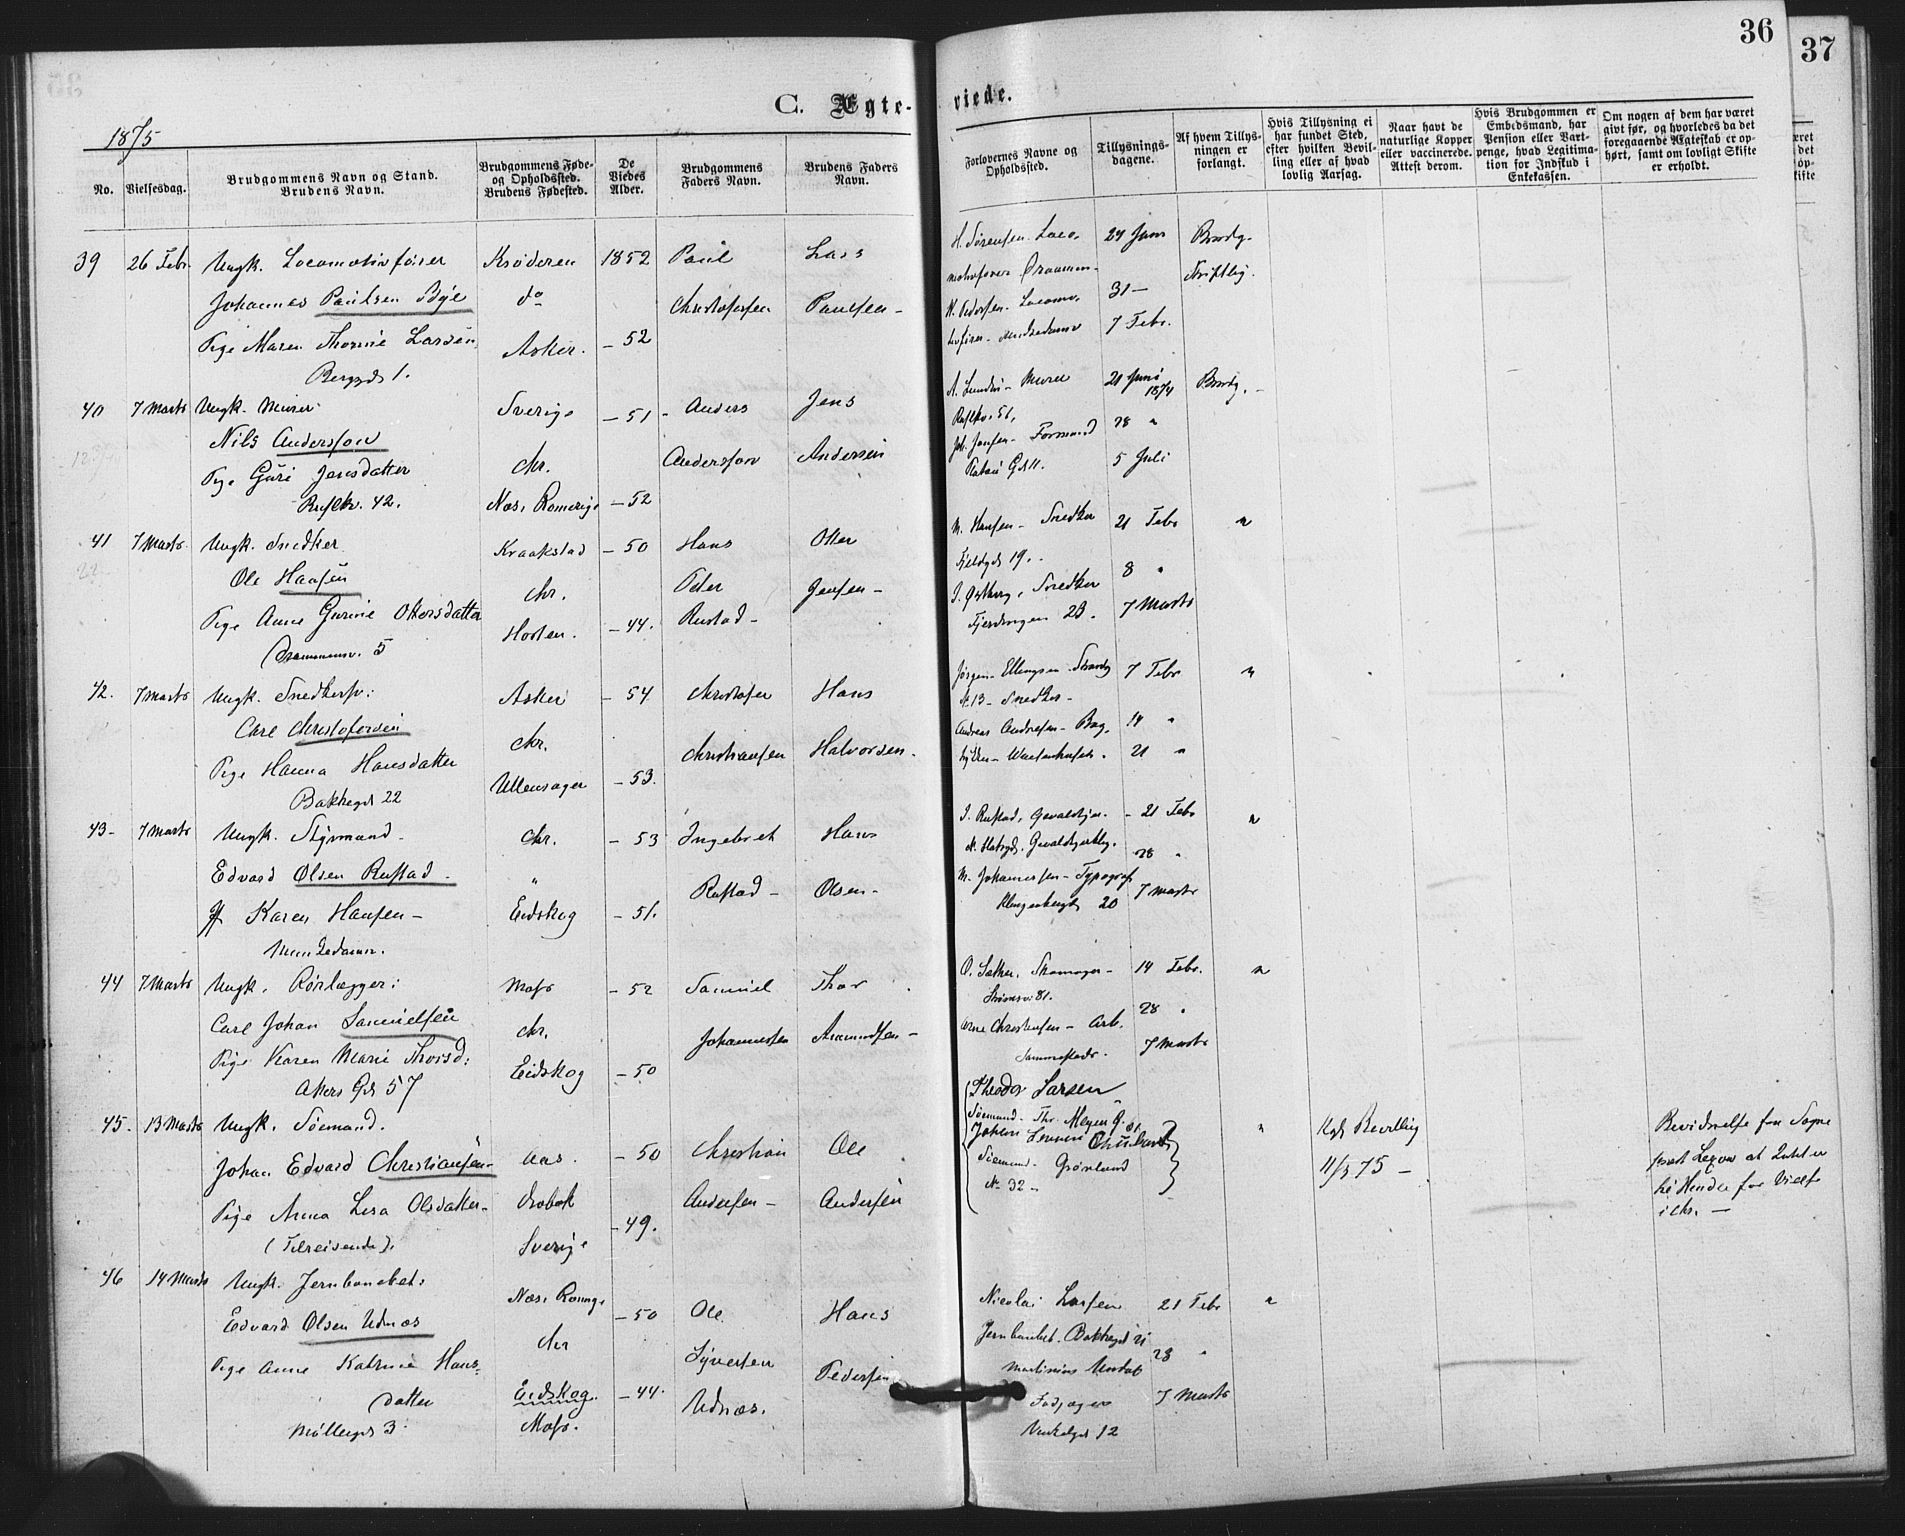 36
37
C. Ægte-
viede.
1875
No.
Vielsesdag.
Brudgommens Navn og Stand.
Brudens Navn.
Brudgommens Føde-
og Opholdssted.
Brudens Fødested.
De
Viedes
Alder.
Brudgommens
Faders Navn.
Brudens Faders
Navn.
Forlovernes Navne og
Opholdssted.
Tillysnings-
dagene.
Af hvem Tillys-
ningen er
forlangt.
Hvis Tillysning ei
har fundet Sted,
efter hvilken Bevil-
ling eller af hvad
lovlig Aarsag.
Naar havt de
naturlige Kopper
eller vaccinerede.
Attest derom.
Hvis Brudgommen er
Embedsmand, har
Pension eller Vart-
penge, hvad Legitima-
tion for Indskud i
Enkekassen.
Om nogen af dem har været
givt før, og hvorledes da det
foregaaende Ægteskab er op-
hørt, samt om lovligt Skifte
er erholdt.
39 26 Febr. Ungk. Locomotivfører Krøderen 1852 Paul Lars
Johannes Paulsen Bye do Christofersen Paulsen -
Pige Maren Thorine Larsen Asker. - 52
Bergsgd 1.
H. Sørensen Loco.
24 Janr Brudg.
Skriftlig.
31 -
7 Febr.
40 7 Marts Ungk. Murer Sverige - 51 - Anders Jens
Nils Andersson Chr. Andersson Andersen
Pige Guri Jensdatter
Rusløkv. 42. Næs, Romerige - 52
A. Lundin - Murer 21 Juni 1874 Brudg. -
Rusløkv. 51,
Joh. Jansen - Formand 28 "
Gd 11. 5 Juli
41 7 Marts Ungk. Snedker Kraakstad - 50 Hans Otter
Ole Hansen Chr. Peder Jensen -
Pige Anne Gurine Ottersdatter Rustad -
Drammensv. 5 - 44.
M. Hansen - Snedker 21 Febr "
19. -
8 "
Snedker
Fjerdingen 23. 7 Marts
42. 7 Marts Ungk. Snedkersv: Asker - 54 Christofer Hans
Carl Christofersen Chr. Christiansen Halvorsen.
Pige Hanna Hansdatter Ullensager - 53.
Bakkegd 22
Jørgen Ellingsen 7 Febr "
13 - Snedker -
Andreas Andresen - 14 "
21 "
43 - 7 Marts Ungk. Styrmand - Chr. - 53 Ingebret Hans
Edvard Olsen Rustad - " Rustad - Olsen -
Karen Hansen - Eidskog - 51.
Munkedamv.
J. Rustad, - 21 Febr "
28 "
M. Johannesen - Typograf 7 Marts
Klingenbergd 20
44 7 Marts Ungk. Rørlægger: Moss - 52 Samuel Thor
Carl Johan Samuelsen Chr. Johannesen Aamundsen -
Pige Karen Marie Thorsd: Eidskog - 50
Akers Gd 57
O. Sæther, Skomager - 14 Febr. "
81. 28 "
Arne Christensen - Arb. 7 Marts
Sammesteds.
45. 13 Marts Ungk. Sømand. Aas. - 50 Christian Ole
Johan Edvard Christiansen - Drøbak Andersen - Andersen
Pige Anna Lisa Olsdatter - Sverige - 49.
(Tilreisende).
Theodor Larsen
Sømand. Thv. Meyers G. 61. " Kgl. Bevilling
Johan
Sømand. Grønland 11/3 75 -
No 32 -
Bevidnelse fra Sogne
præst at Intet er
til Hinder for Vielse
i Chr. -
46 14 Marts Ungk. Jernbanebet: Næs, Romerige - 50 Ole Hans
Edvard Olsen Udnæs Chr Syversen Pedersen
Pige Anne Katrine Hans-
datter Eidskog - 44. Udnæs.
Møllergd 3 Moss.
Nicolai Larsen 21 Febr "
Jernbanbet. Bakkegd 21
28 "
7 Marts
12